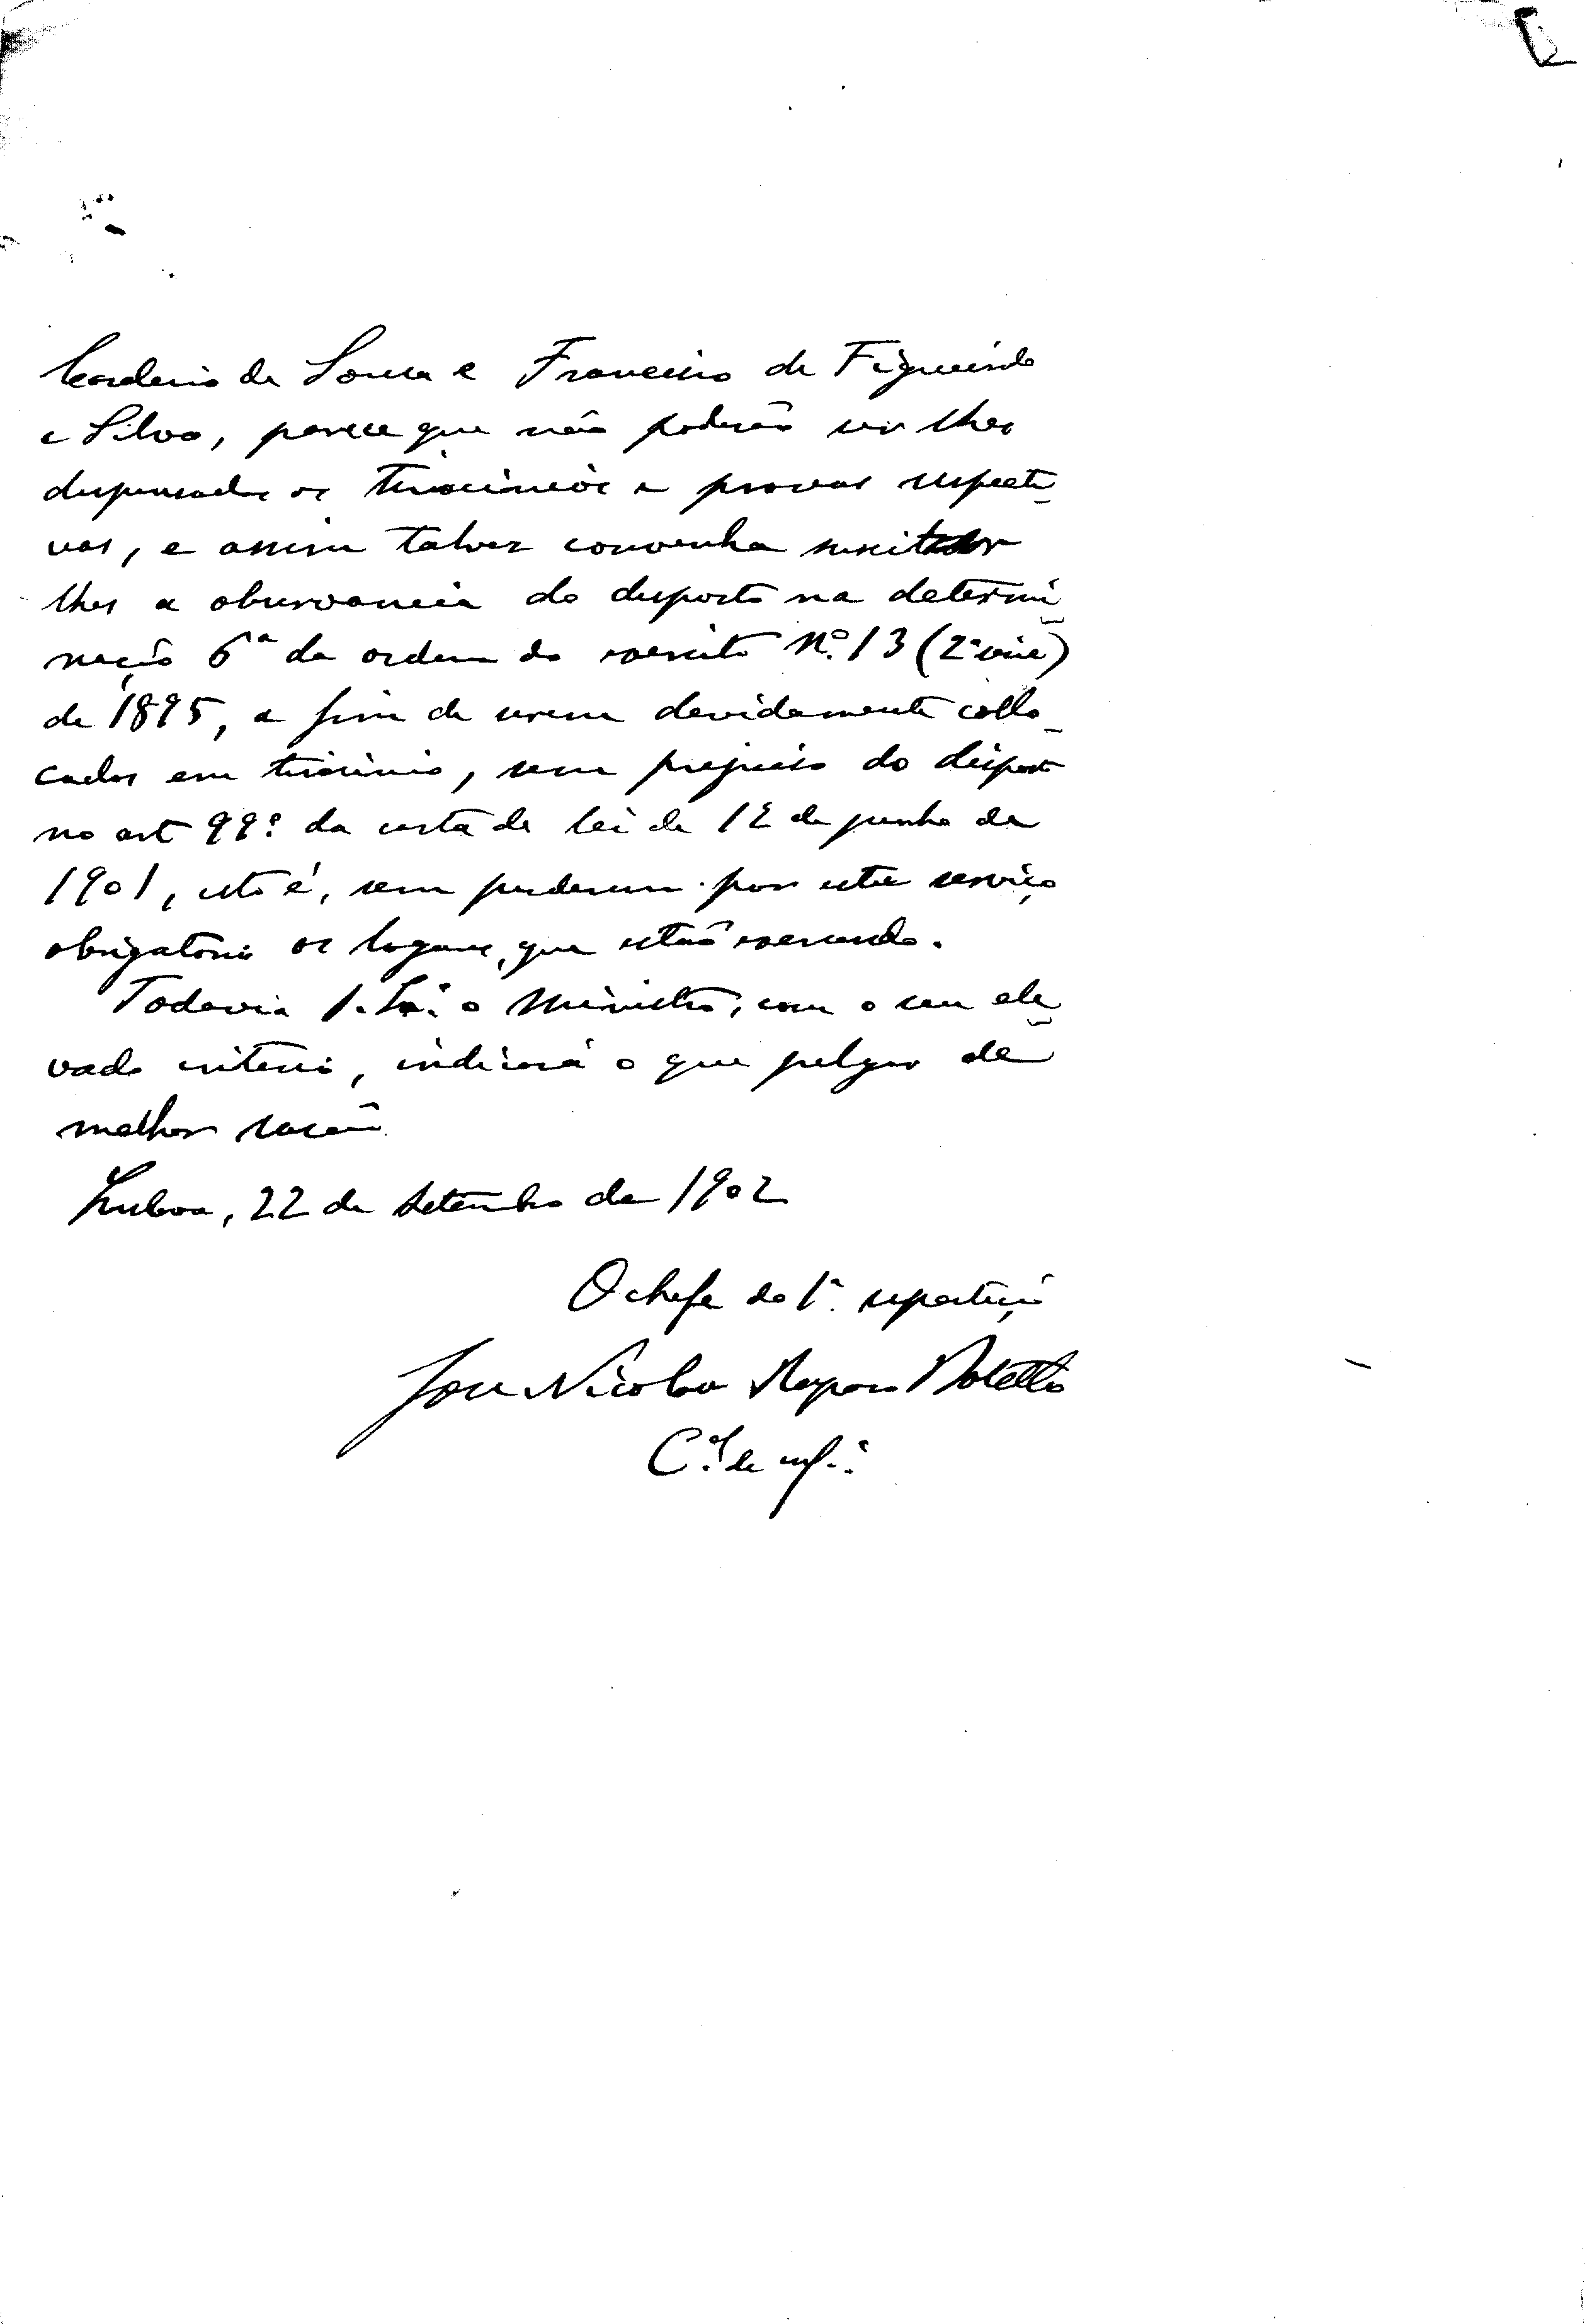 Cordeiro de Sousa e Francisco de Figueiredo
e Silva, parece que não poderão ser lhes
dispensados os tirocinios e provas respecti
vas, e assim talvez convenha suscitar
lhes a observancia do disposto na determi
nação 6ª da ordem do exercito Nº 13 (2ª série)
de 1895, a fim de serem devidamente collo
cados em tirocinio, sem prejuiso do disposto
no art 99º da carta de lei de 12 de junho de
1901, isto é, sem perderem por este serviço
obrigatorio os logares, que estão exercendo.
Todavia S. Exª o Ministro, com o seu ele
vado criterio, indicará o que julgar de
melhor rasão
Lisboa, 22 de Setembro de 1902
O chefe da 1ª repartição
José Nicolau Raposo Botelho
Cel de infª